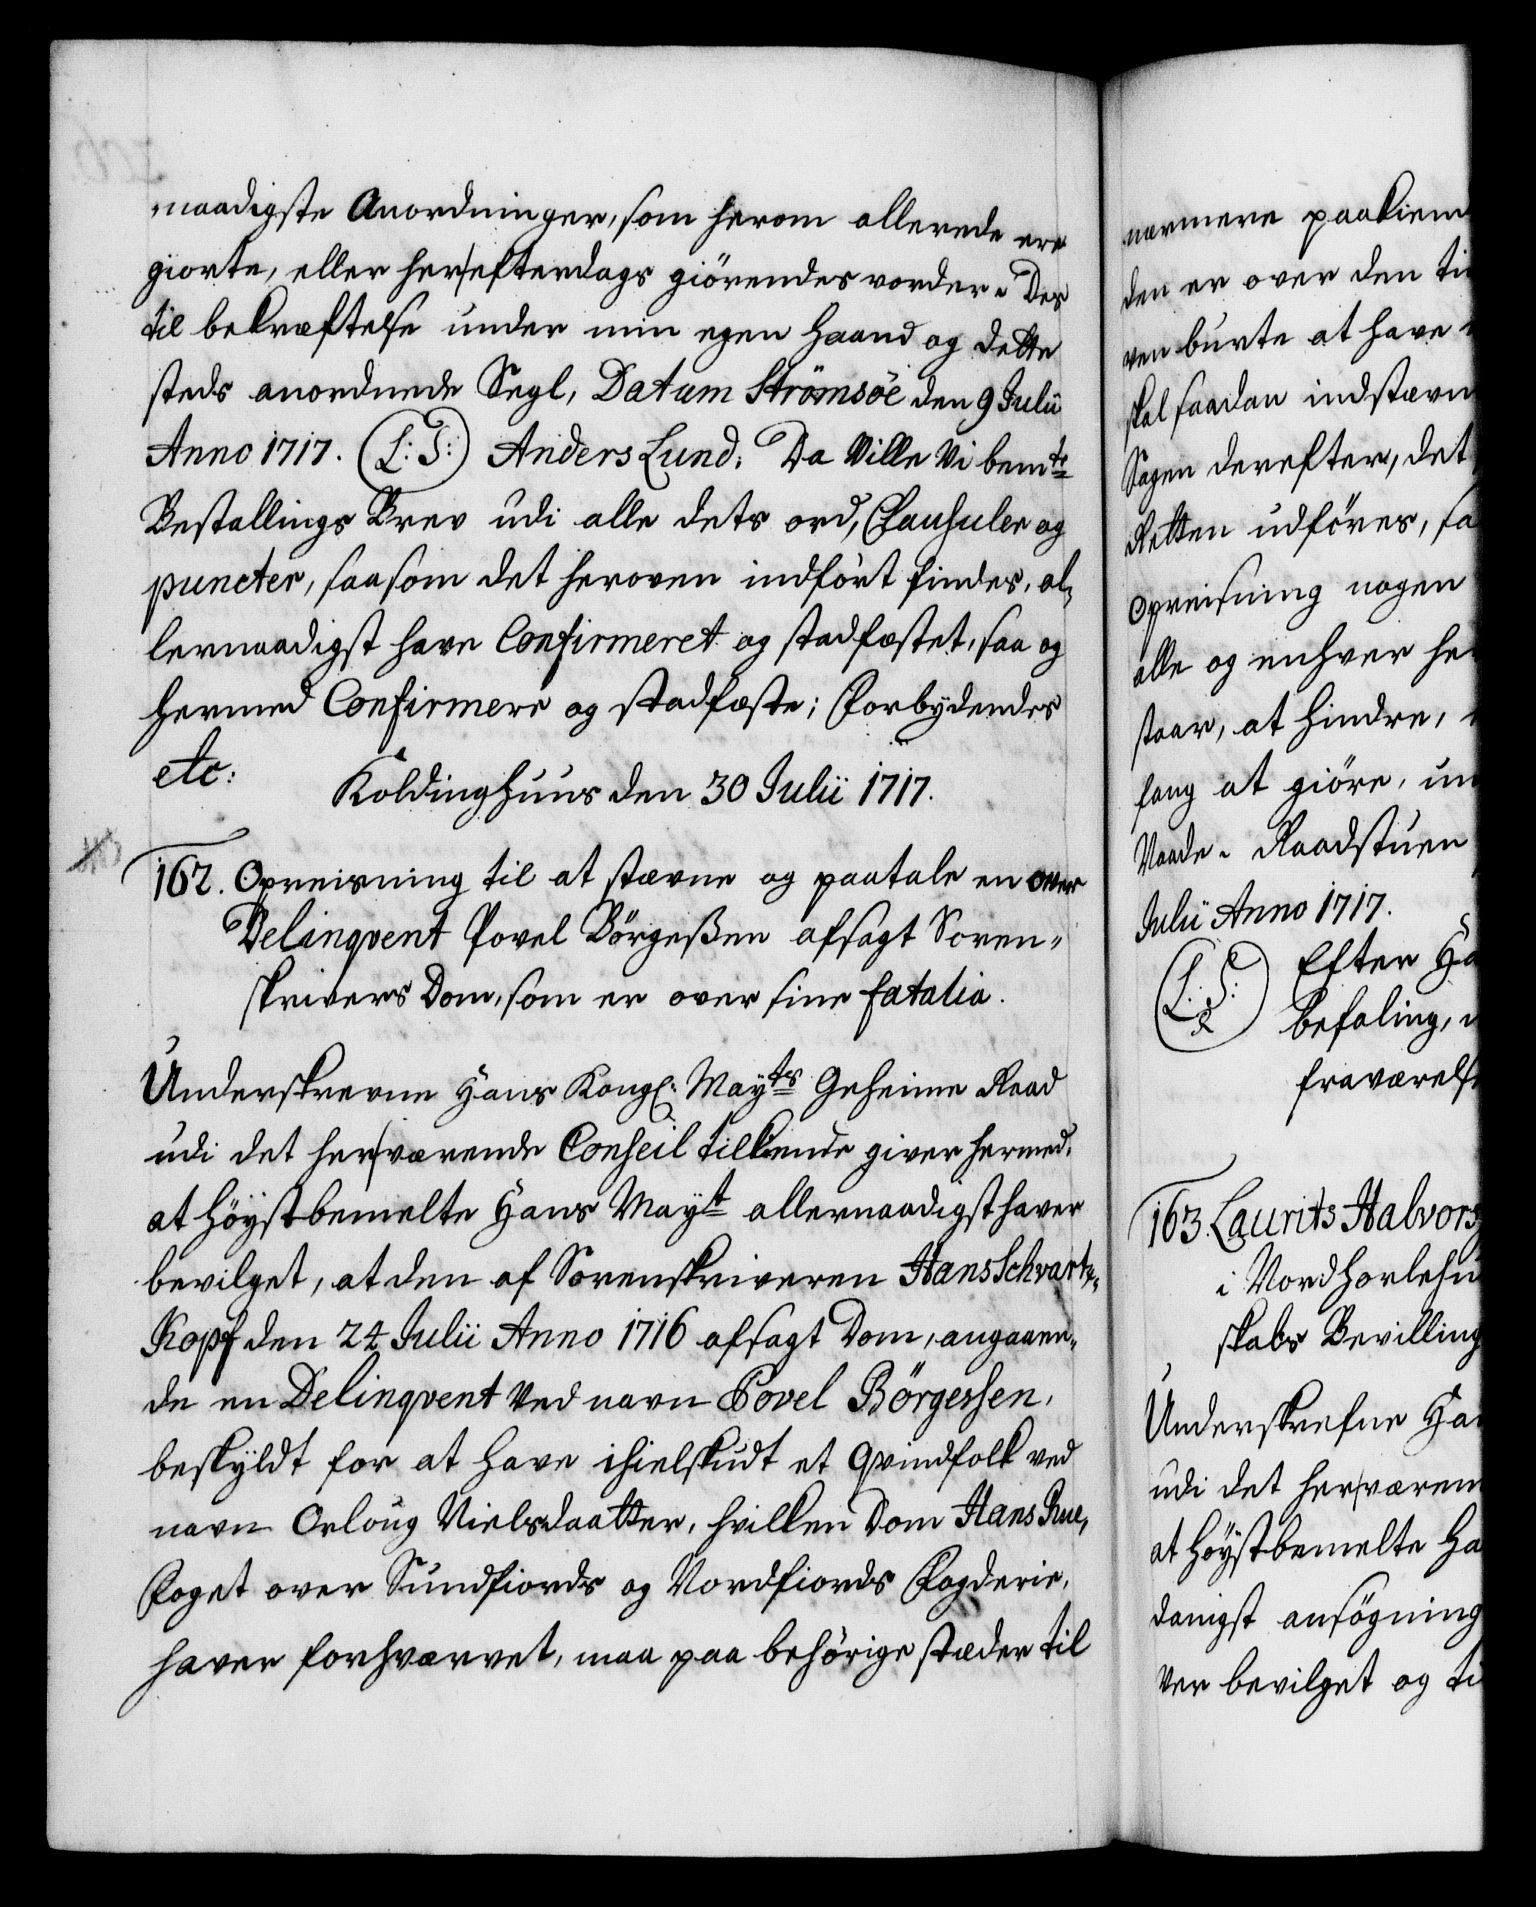 naadigste Anordninger, som herom allerede ere
giorte, eller her efterdags giörendes vorder. Des
til bekræftelse under min egen Haand og dette
steds anordnede Segl, Datum Strömsöe den 9 Julii
Anno 1717. (L: S:) Anders Lund; Da Ville Vi bemte
Bestallings Brev udi alle dets ord, Clausuler og
puncter, saasom det heroven indfört findes, al-
lernaadigst have Confirmeret og stadfæstet, saa og
hermed Confirmere og stadfæste; Forbydendes
etc: Koldinghuus den 30 Julii 1717.
162. Opreisning til at stævne og paatale en over
Delinqvent Povel Börgeßen afsagt Soren-
skrivers Dom, som er over sine fatalia.
Underskrevne Hans Kongl: Mayts Geheime Raad
udi det her værende Conseil tilkiende giver hermed,
at Höystbemelte Hans Mayt allernaadigst haver
bevilget, at den af Sorenskriveren Hans Schvarts-
Kopf den 24 Julii Anno 1716 afsagt Dom, angaaen-
de en Delinqvent Ved navn Povel Börgessen,
beskyldt for at have ihielskudt et Qvindfolk ved
navn Orloug Nielsdaatter, hvilken Dom Hans Rue,
Foget over Sundfiords og Nordfiords Fogderie,
haver forhværvet, maa paa behörige stæder til
nærmere paakiem
den er over den ti
ven burte at have
skal saadan indstævn
Sagen derefter, det
Retten udföres, sa
Opreisning nogen
alle og enhver he
staar, at hindre,
fang at giöre, un
Naade. Raadstuen
Julii Anno 1717.
(L: S:) Efter Ha
befaling,
fraværelse
163. Laurits Halvors
i Nordhorlehn
skabs Bevilling
Underskrefne Ha
udi det her væren
at Höystbemelte Ha
danigst ansögning
ver bevilget og ti